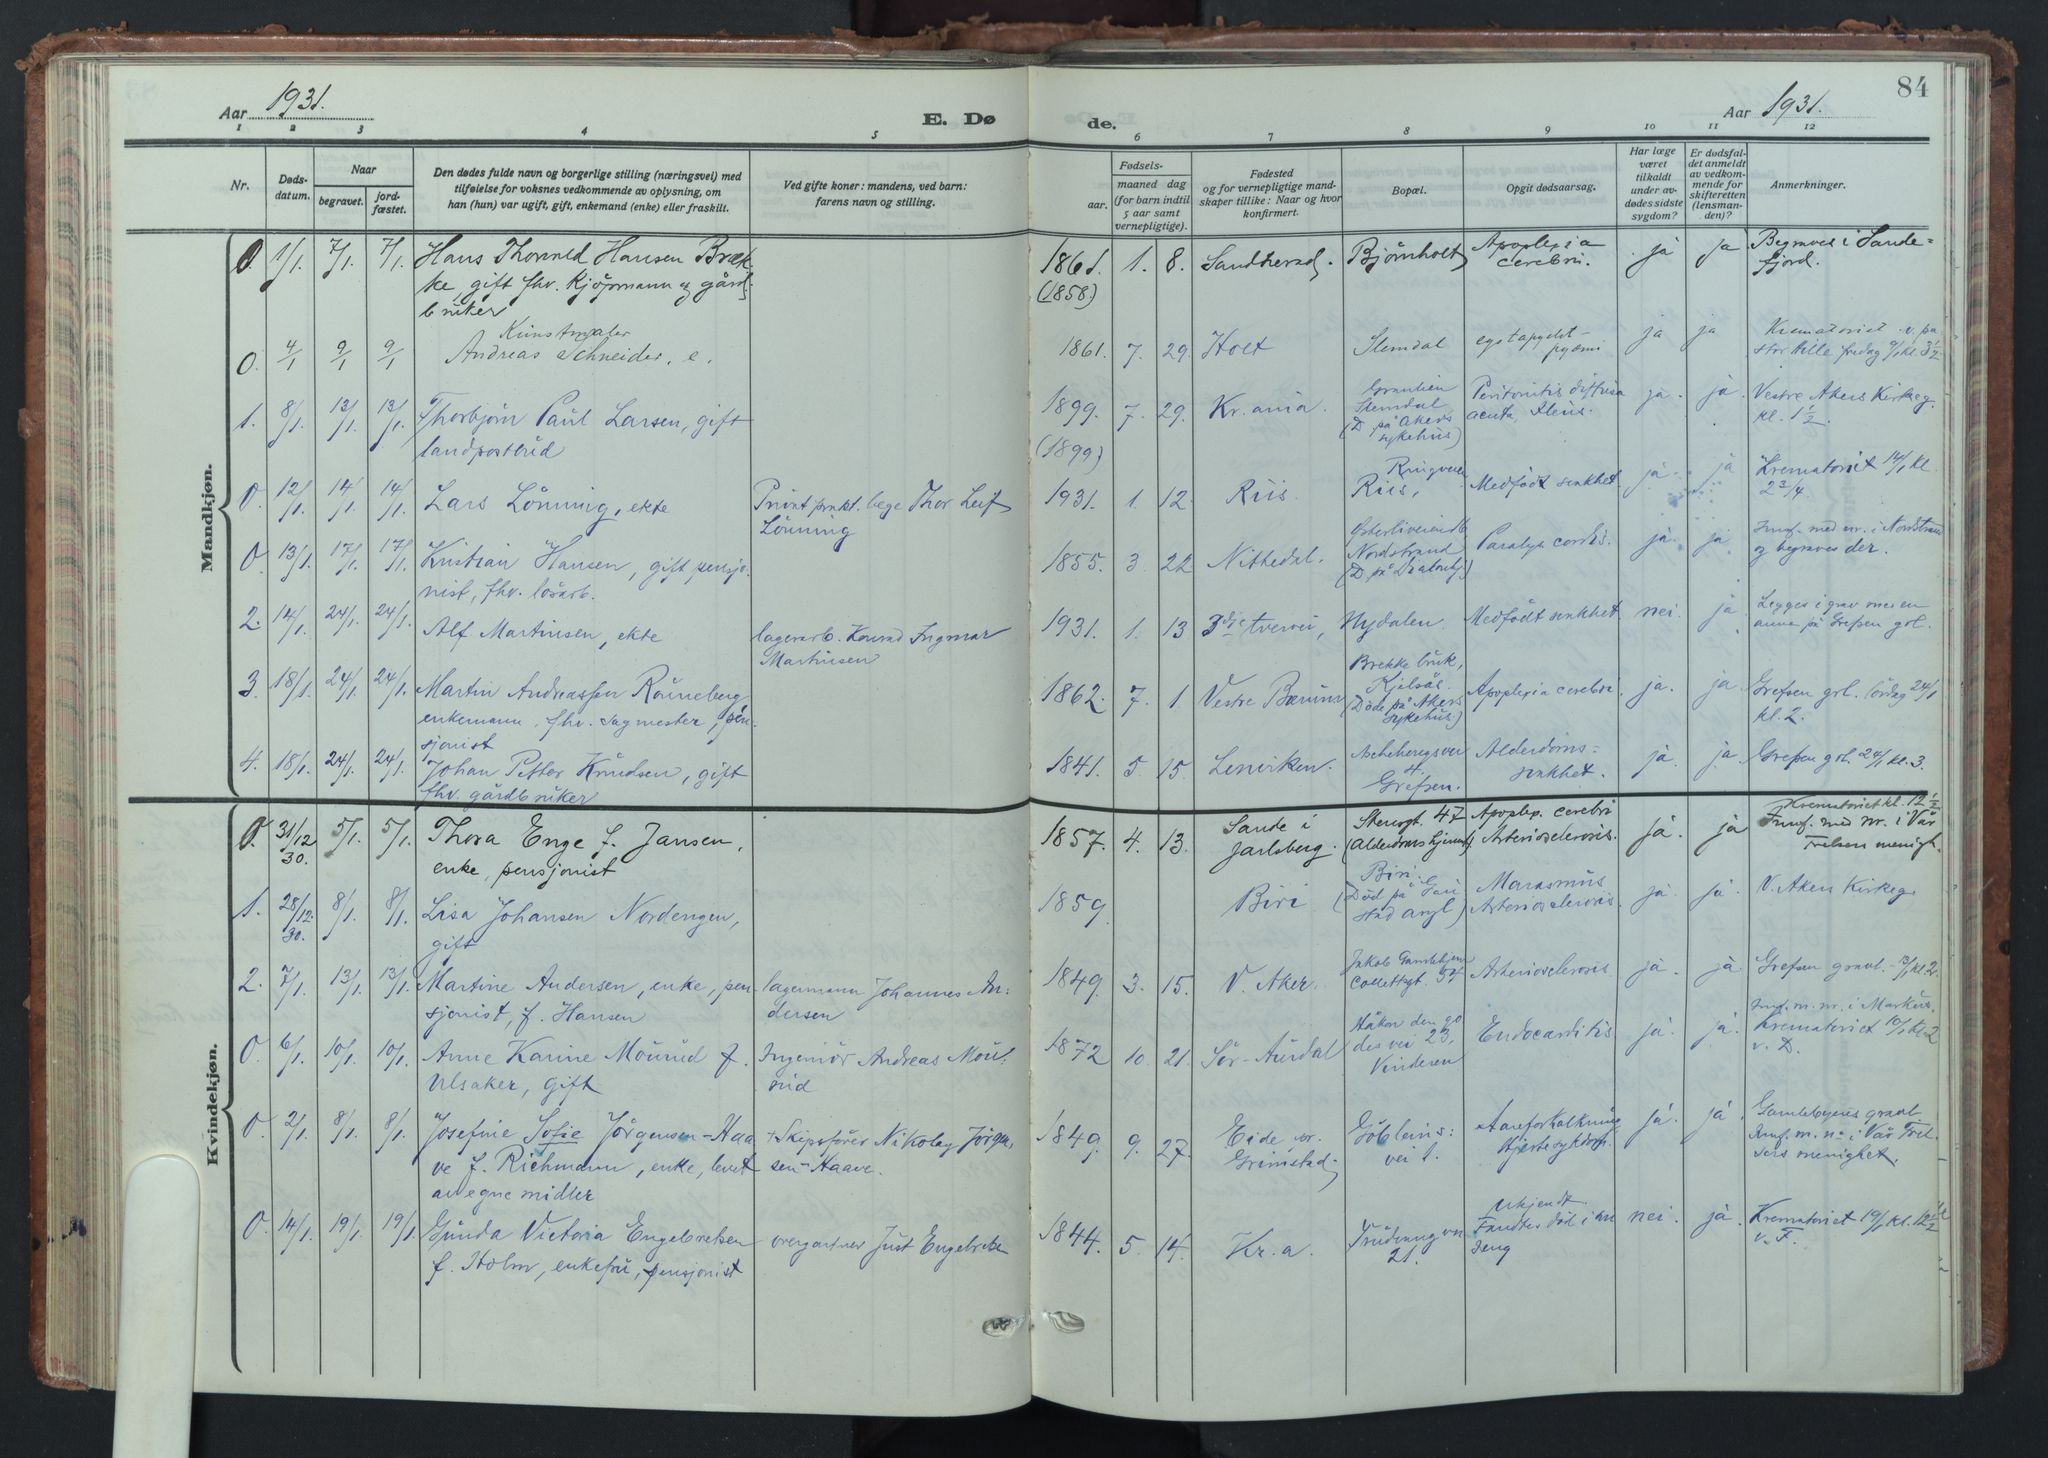 Aar 1931.
E. Dø
de.
Aar 1931.
84
1 2 3 4 5 6 7 8 9 10 11 12
Nr.
Døds-
datum.
Naar
begravet.
jord-
fæstet.
Den dødes fulde navn og borgerlige stilling (næringsvei) med
tilføielse for voksnes vedkommende av oplysning, om
han (hun) var ugift, gift, enkemand (enke) eller fraskilt.
Ved gifte koner: mandens, ved barn:
farens navn og stilling.
Fødsels-
aar.
maaned dag
(for barn indtil
5 aar samt
vernepligtige).
Fødested
og for vernepligtige mand-
skaper tillike: Naar og hvor
konfirmert.
Bopæl.
Opgit dødsaarsag.
Har læge
været
tilkaldt
under av-
dødes sidste
sygdom?
Er dødsfal-
det anmeldt
av vedkom-
mende for
skifteretten
(lensman-
den)?
Anmerkninger.
Mandkjøn.
0. 1/1. 7/1. 7/1. Hans Thorvald Hansen Bræk-
ke, gift fhv. kjøpmann og gård-
bruker
1861. 1. 8. Sandherad. Bjørnholt Apoplexia
cerebri. ja ja Begraves i Sande-
fjord.
(1858)
0. 4/1 9/1 9/1 Kunstmaler
Andreas Schneider, e.
1861. 7. 29. Holt Slemdal
ja ja Krematoriet
store kl. 3 1/2
1. 8/1. 13/1. 13/1. Thorbjörn Paul Larsen, gift
landpostbud
1899. 7. 29. Kr.ania.
(1899)
Slemdal
(D på Akers
sykehus)
Peritonitis diffusa
acuta, Ileus. ja. ja. Vestre Akers Kirkeg.
kl. 1 1/2
0. 12/1. 14/1. 14/1. Lars Lönning, ekte Privat prakt. lege Thor Leif
Lönning
1931. 1. 12. Riis. Ringveien
Riis, Medfödt svakhet ja. ja Krematoriet 14/1 kl.
2 3/4.
0. 13/1. 17/1. 17/1. Kristian Hansen, gift pensjo-
nist, fhv. lösarb.
1855. 3. 22 Nittedal.
Nordstrand
Paralys. cordis. ja. ja Innf. med nr. i Nordstrand
og begraves der.
2. 14/1. 24/1. 24/1. Alf Martinsen, ekte lagerarb. Konrad Ingmar
Martinsen
1931. 1. 13 3dje tvervei, Nydalen. Medfödt svakhet. nei. ja. Legges i grav med en
annen på Grefsen grl.
3. 18/1. 24/1. 24/1. Martin Andreassen Rönneberg
enkemann, fhv. sagmester, pen-
sjonist
1862. 7. 1. Vestre Bærum Brekke bruk,
Kjelsås.
(Döde på Akers
sykehus.)
Apoplexia cerebri ja. ja. Grefsen grl. lördag 24/1
kl. 2.
4. 18/1. 24/1. 24/1. Johan Petter Knudsen, gift
fhv. gårdbruker
1841. 5. 15. Lenviken. Aschehougsvei
4.
Grefsen.
Alderdoms-
svakhet. ja. ja. Grefsen grl. 24/1 kl. 3.
Kvindekjøn.
0. 31/12
30. 5/1. 5/1. Thora Enge f. Jansen,
enke, pensjonist
1857. 4. 13. Sande i
Jarlsberg. Stensgt. 47
(Alderdomshjemmet)
Apoplex. cerebri
Arteriosclerosis. ja. ja Krematoriet kl. 12 1/2
Innf. med nr. i Vår
Frelsers menigh.
1. 28/12.
30. 8/1. 8/1. Lisa Johansen Nordengen,
gift
1859. Biri Biri.
(Död på Gau
stad asyl)
Marasmus
Arteriosclerosis. ja. ja. V. Aker Kirkeg.
2. 7/1. 13/1. 13/1. Martine Andersen, enke, pen-
sjonist, f. Hansen lagermann Johannes An-
dersen
1849. 3. 15. V. Aker.
Collettsgt. 54
Arteriosclerosis. ja. ja Grefsen gravl. 13/1 kl. 2.
0. 6/1. 10/1. 10/1. Anne Karine Mourud f.
Ulsaker, gift Ingeniör Andreas Mou-
rud
1872 10. 21. Sör-Aurdal Håkon den go
des vei 23,
Vinderen
Endocarditis ja. ja. Innf. m. nr. i Markus.
Krematoriet 10/1 kl. 2
v. D.
0. 2/1. 8/1. 8/1. Josefine Sofie Jörgensen-Haa
ve f. Richmann, enke, levet
av egne midler
+ Skipsförer Nikolay Jörgen
sen-Haave.
1849. 9. 27. Eide pr.
Grimstad.
vei 1.
Aareforkalkning
Hjertesykdom. ja. ja. Gamlebyens gravl.
Innf. m. nr i Vår Frel-
sers menighet.
0. 14/1. 19/1. 19/1. Gunda Victoria Engebretsen
f. Holm, enkefru, pensjonist overgartner Just Engebretsen
1844. 5. 14. Kr.a Trudvangvei
21.
Ukjendt
Fandtes död i sin
seng nei. ja. Krematoriet 19/1 kl. 12 1/2
v. F.